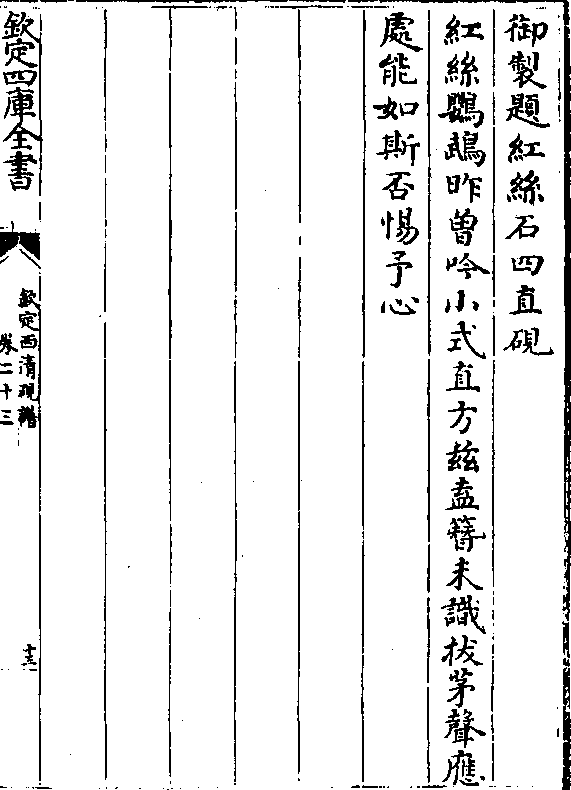 御製題紅絲石四直硯
紅絲鸚鵡昨曾吟小式直方兹盍簪未識拔茅聲應
處能如斯否惕予心
欽定四庫全書
欽定西清硯譜
卷二十三
十三